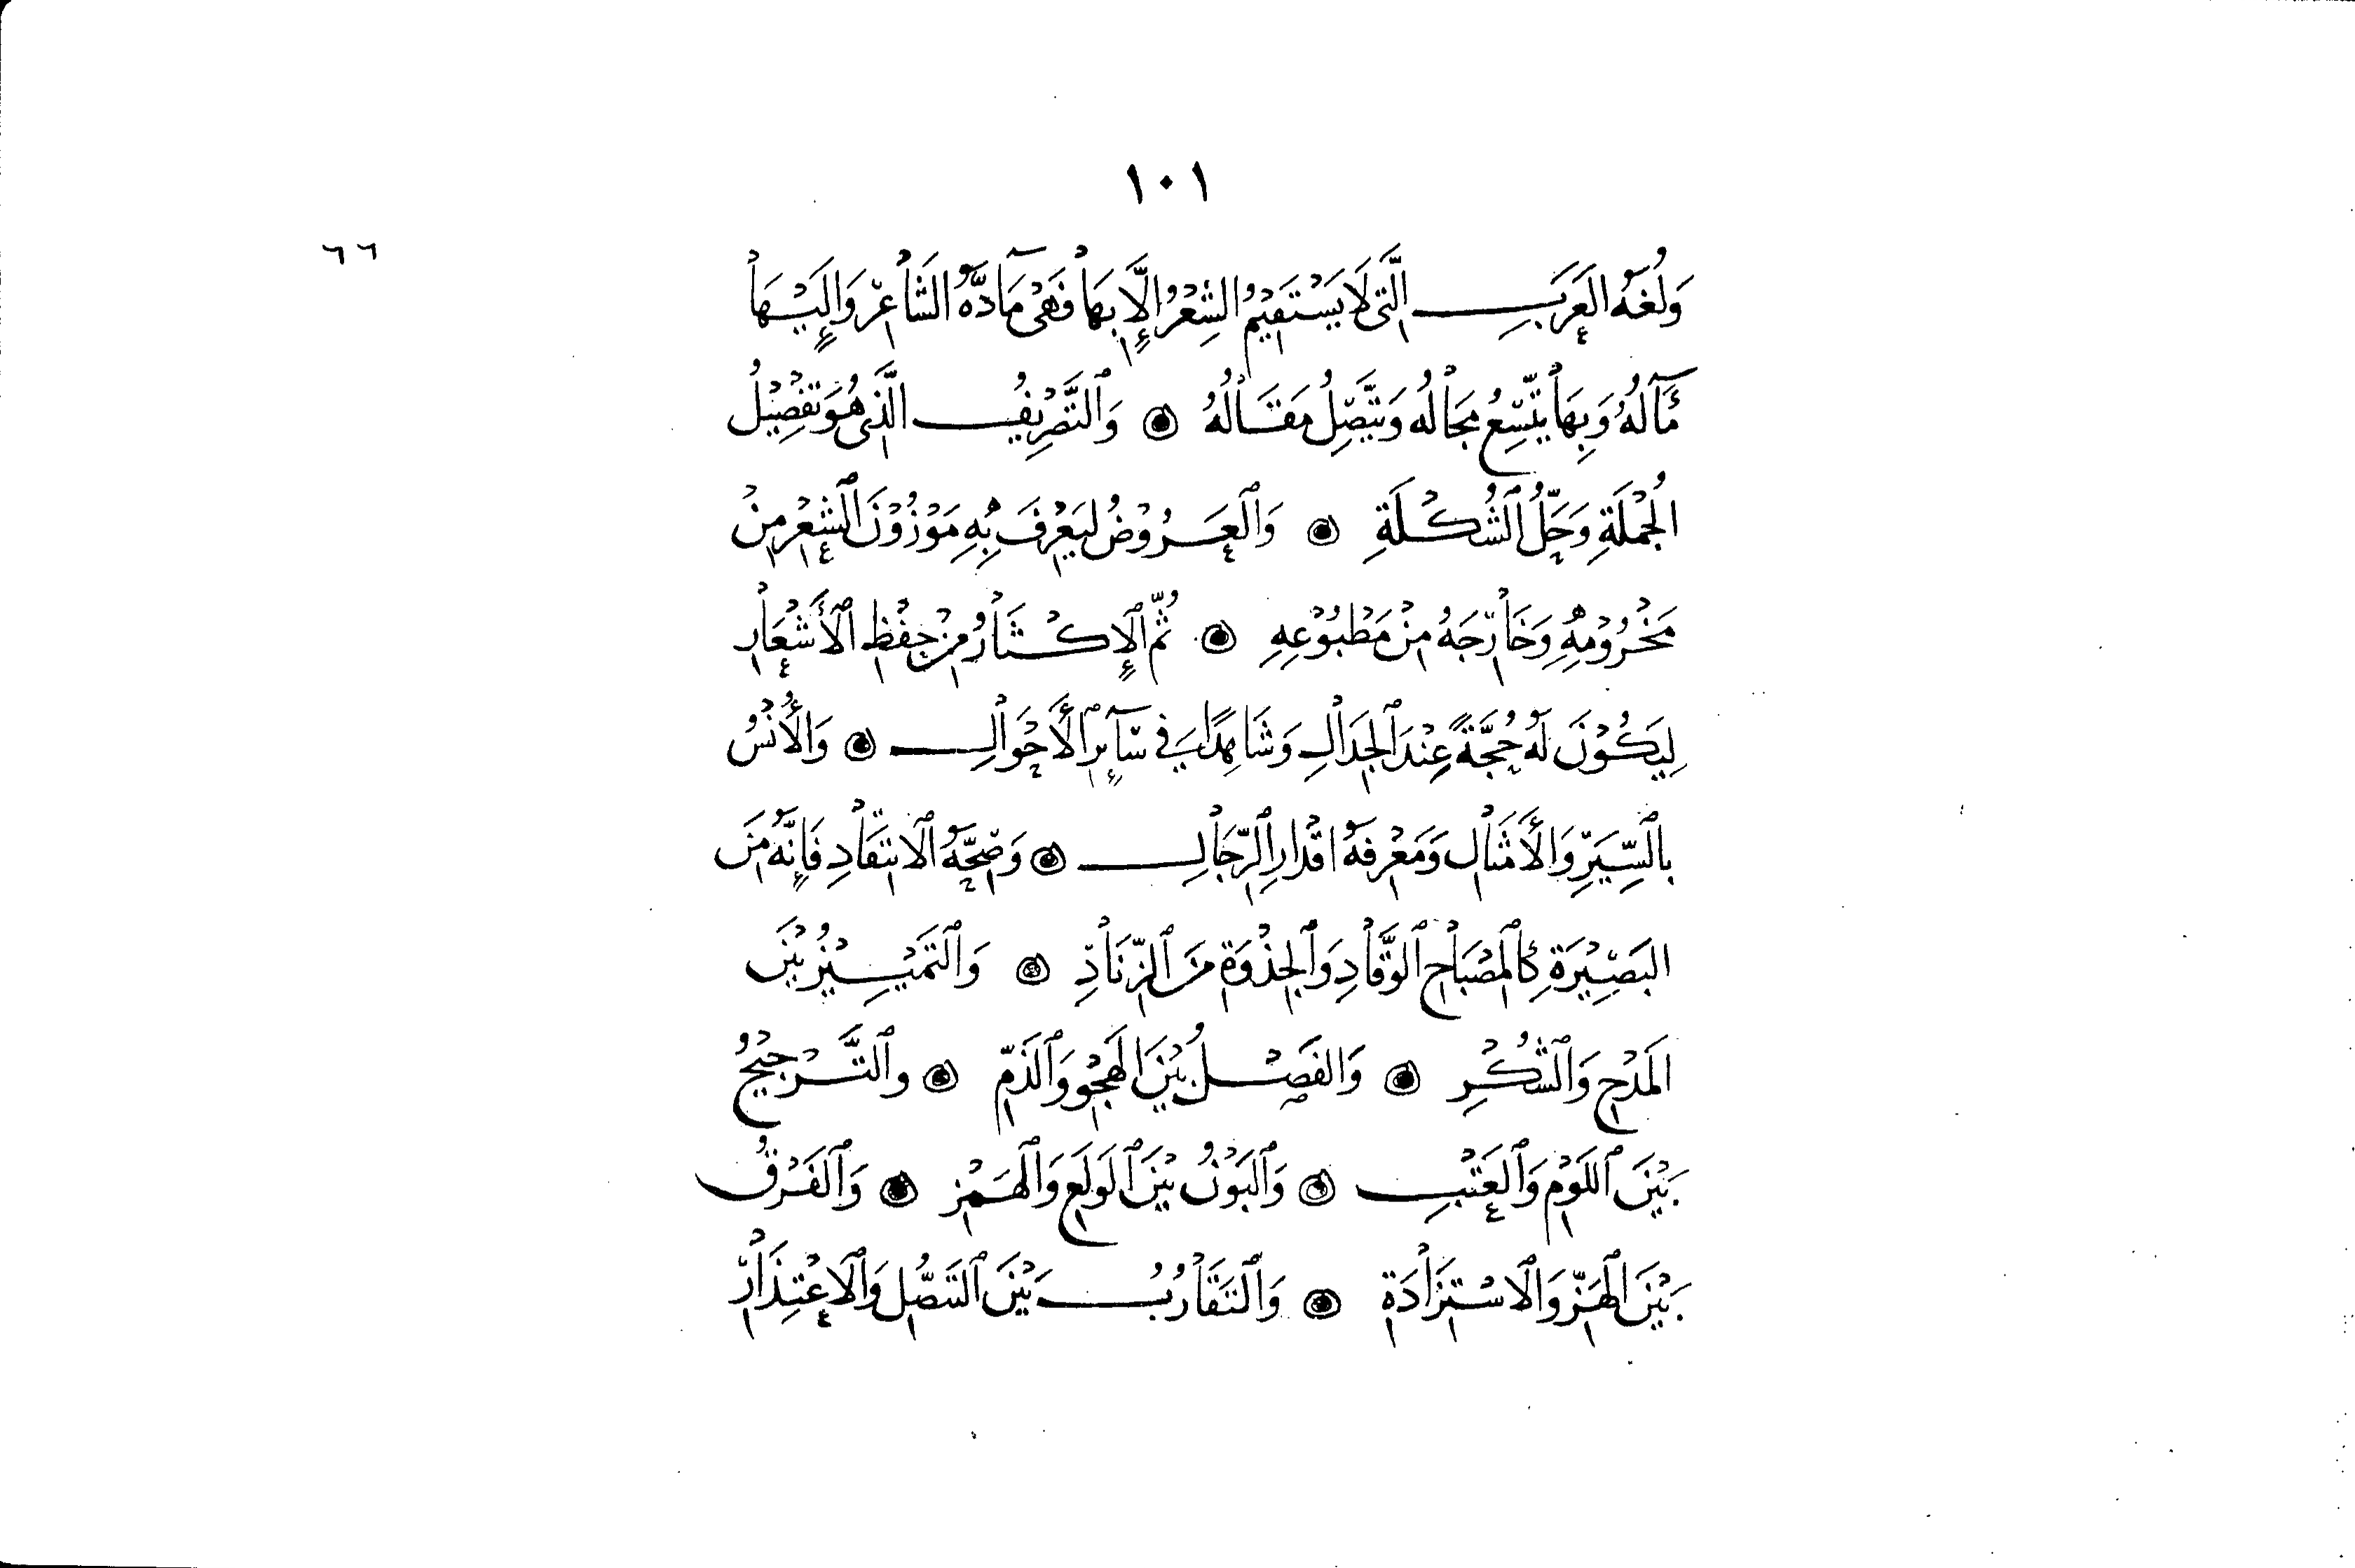 ١٠١
٦٦
وَلُغَةُ العَرَبِ الَّتِى لَا يَسْتَقِيْمُ الشِعْرُ إلَّا بِهَا فَهْىَ مَآدَّةُ الشَاعِرِ وَإلَيْهَا
مَآلُهُ وَبِهَا يَتَّسِعُ مَجَالُهُ وَيَتَّصِلُ مَقَالُهُ ۞ وَالتَّصْرِيْفُ الَّذِى هُوَ تَفْصِيْلُ
الجُمْلَةِ وَحَلُّ الشُكْلَةِ ۞ وَالعَرُوْضُ لِيَعْرِفَ بِهِ مَوْزُوْنَ الشِعْرِ مِنْ
مَخْرُوْمِهِ وَخَارِجَهُ مِنْ مَطْبُوْعِهِ ۞ ثُمَّ الإكْثَارُ مِنْ حِفْظِ الأَشْعَارِ
لِيَكُوْنَ لَهُ حُجَّةً عِنْدَ الجِدَالِ وَشَاهِدًا فِي سَآئِرِ الأَحْوَالِ ۞ وَالأُنْسُ
بِالسِّيَرِ وَالأَمْثَالِ وَمَعْرِفَةُ اقْدَارِ الرِّجَالِ ۞ وَصِحَّةُ الانتِقَادِ فَإنَّهُ مِنَ
البَصِيْرَةِ كَالمِصْبَاحِ الوَقَّادِ وَالجِذْوَةِ مِنَ الزِّنَادِ ۞ وَالتَمْيِيْزُ بَيْنَ
المَدْحِ وَالشُكْرِ ۞ وَالفَصْلُ بَيْنَ الهَجْوِ وَالذَمِّ ۞ والتَّرْجِيْحُ
بَيْنَ اللَوْمِ وَالعَتْبِ ۞ وَالبَوْنُ بَيْنَ الوَلَعِ وَالهَمْزِ ۞ وَالفَرْقُ
بَيْنَ الهَزِّ وَالاسْتِزَادَةِ ۞ وَالتَقَارُبُ بَيْنَ التَنَصُّلِ وَالاعْتِذَارِ